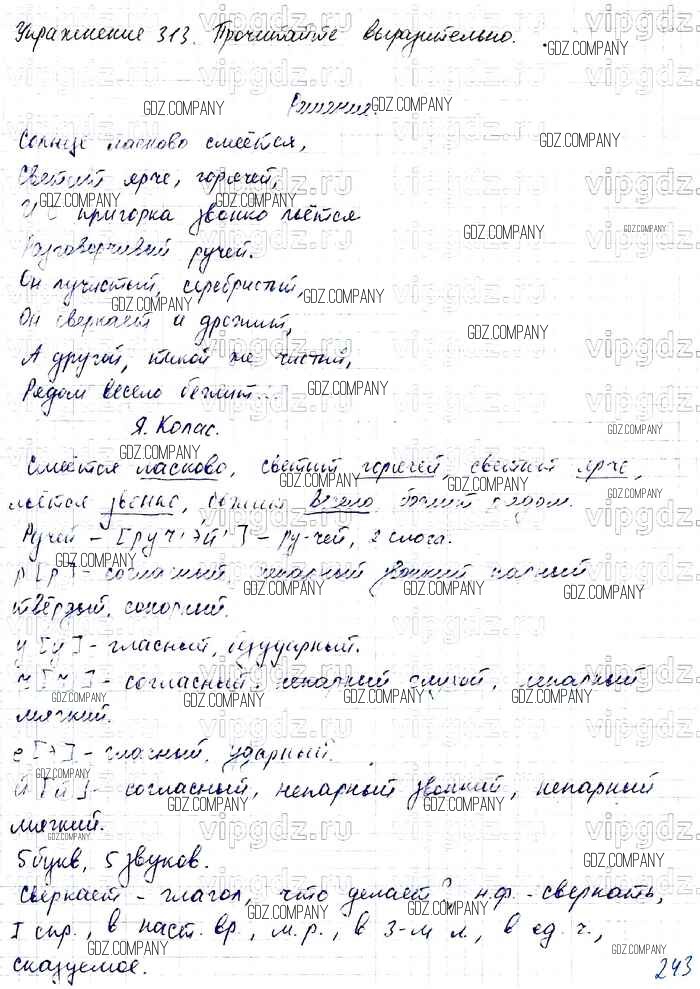 Упражнение 313. Прочитайте выразительно.
Решение.
Солнце ласково смеётся,
Светит ярче, горячей,
И с пригорка звонко льётся
Разговорчивый ручей.
Он лучистый, серебристый,
Он сверкает и дрожит,
А другой, такой же чистый,
Рядом весело бежит...
Я. Колас.
Смеётся ласково, светит горячей, светит ярче,
льётся звонко, бежит весело, бежит рядом.
Ручей - [руч'эй'] - ру-чей, 2 слога.
р [р] - согласный, непарный звонкий, парный
твёрдый, сонорный.
у [у] - гласный, безударный.
ч [ч'] - согласный, непарный глухой, непарный
мягкий.
е [э] - гласный, ударный.
й [й'] - согласный, непарный звонкий, непарный
мягкий.
5 букв, 5 звуков.
Сверкает - глагол, что делает?, н.ф. - сверкать,
I спр., в наст. вр., м.р., в 3-м л., в ед. ч.,
сказуемое.
243
GDZ.COMPANY
vipgdz.ru